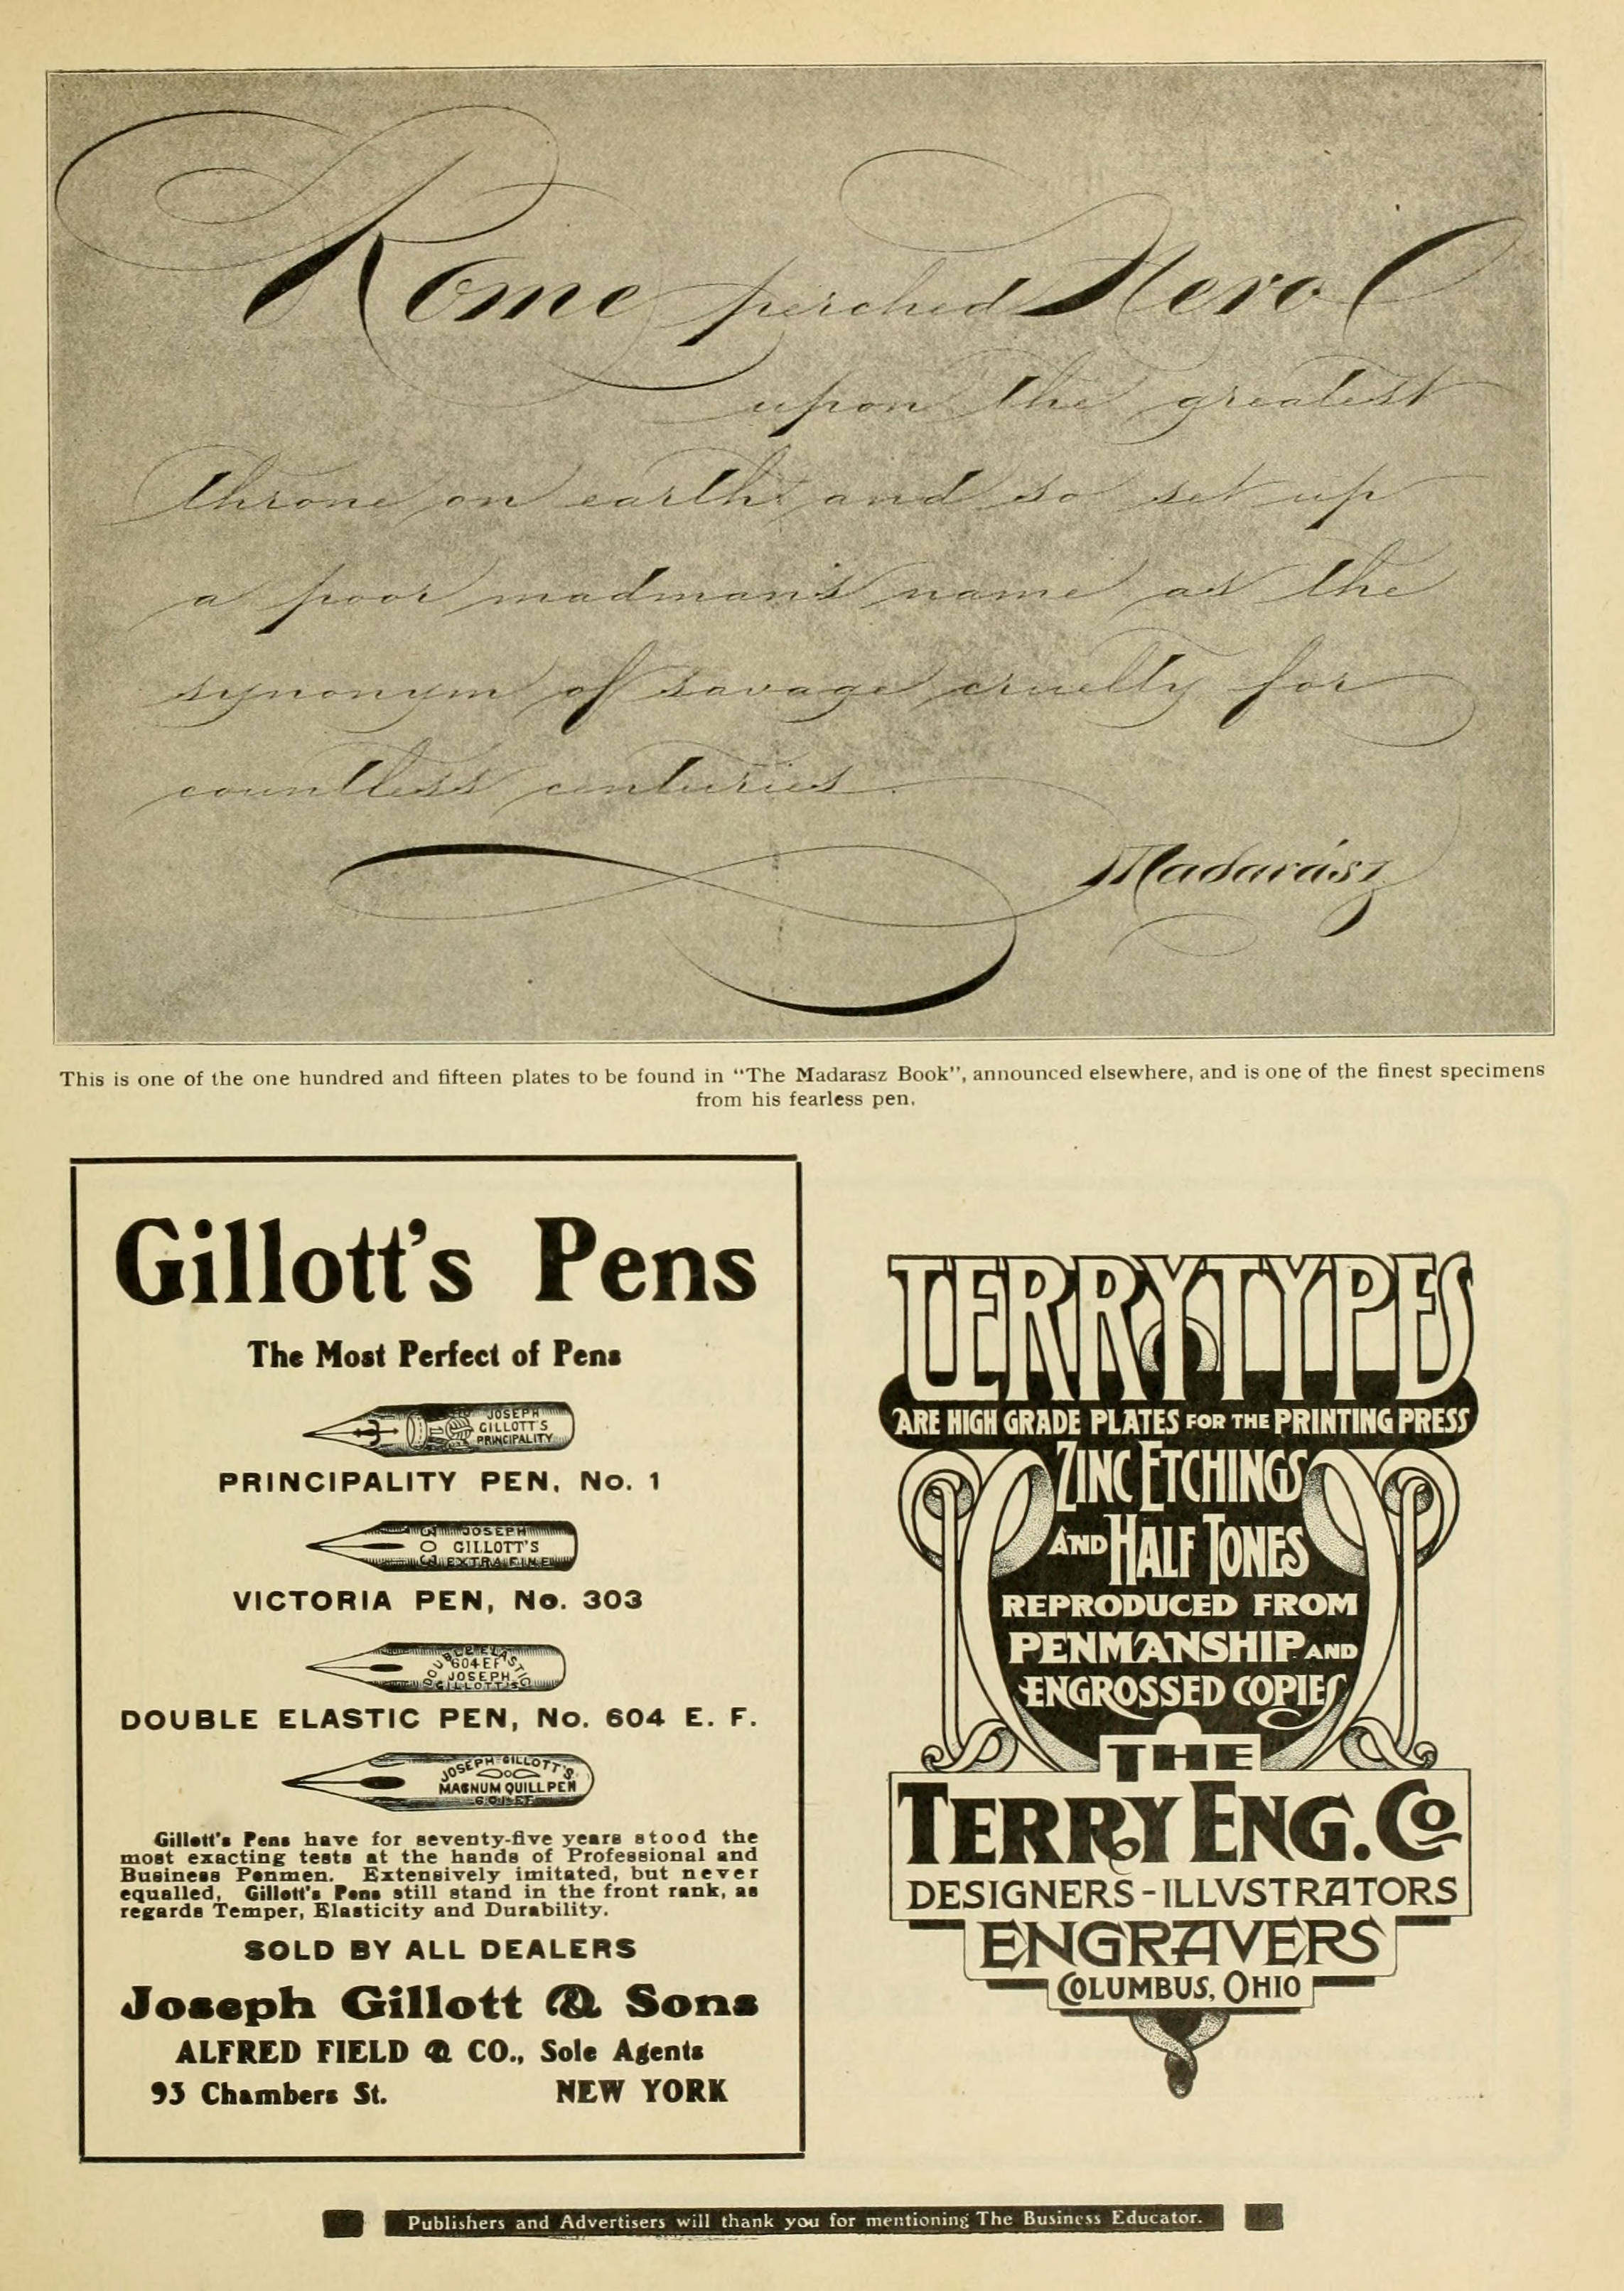 Rome perched Nero
upon the greatest
throne on earth and so set up
a poor madman's name as the
synonym of savage cruelty for
countless centuries.
Madarász
This is one of the one hundred and fifteen plates to be found in "The Madarasz Book", announced elsewhere, and is one of the finest specimens
from his fearless pen.
Gillott's Pens
The Most Perfect of Pens
JOSEPH
GILLOTT'S
PRINCIPALITY
PRINCIPALITY PEN, No. 1
303
JOSEPH
GILLOTT'S
EXTRA FINE
VICTORIA PEN, No. 303
DOUBLE ELASTIC
604 EF
JOSEPH
GILLOTT'S
DOUBLE ELASTIC PEN, No. 604 E. F.
JOSEPH GILLOTT'S
MAGNUM QUILL PEN
601 EF
Gillott's Pens have for seventy-five years stood the
most exacting tests at the hands of Professional and
Business Penmen. Extensively imitated, but never
equalled, Gillott's Pens still stand in the front rank, as
regards Temper, Elasticity and Durability.
SOLD BY ALL DEALERS
Joseph Gillott & Sons
ALFRED FIELD & CO., Sole Agents
93 Chambers St. NEW YORK
TERRYTYPES
ARE HIGH GRADE PLATES FOR THE PRINTING PRESS
ZINC ETCHINGS
AND HALF TONES
REPRODUCED FROM
PENMANSHIP AND
ENGROSSED COPIES
THE
TERRY ENG. CO
DESIGNERS-ILLVSTRATORS
ENGRAVERS
COLUMBUS, OHIO
Publishers and Advertisers will thank you for mentioning The Business Educator.